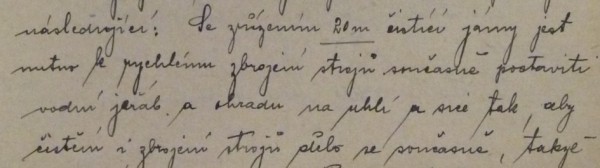 následující: Se zřízením 20 m čistící jámy jest
nutno k rychlému zbrojení strojů současně postaviti
vodní jeřáb a ohradu na uhlí a sice tak, aby
čistění i zbrojení strojů dělo se současně, takže